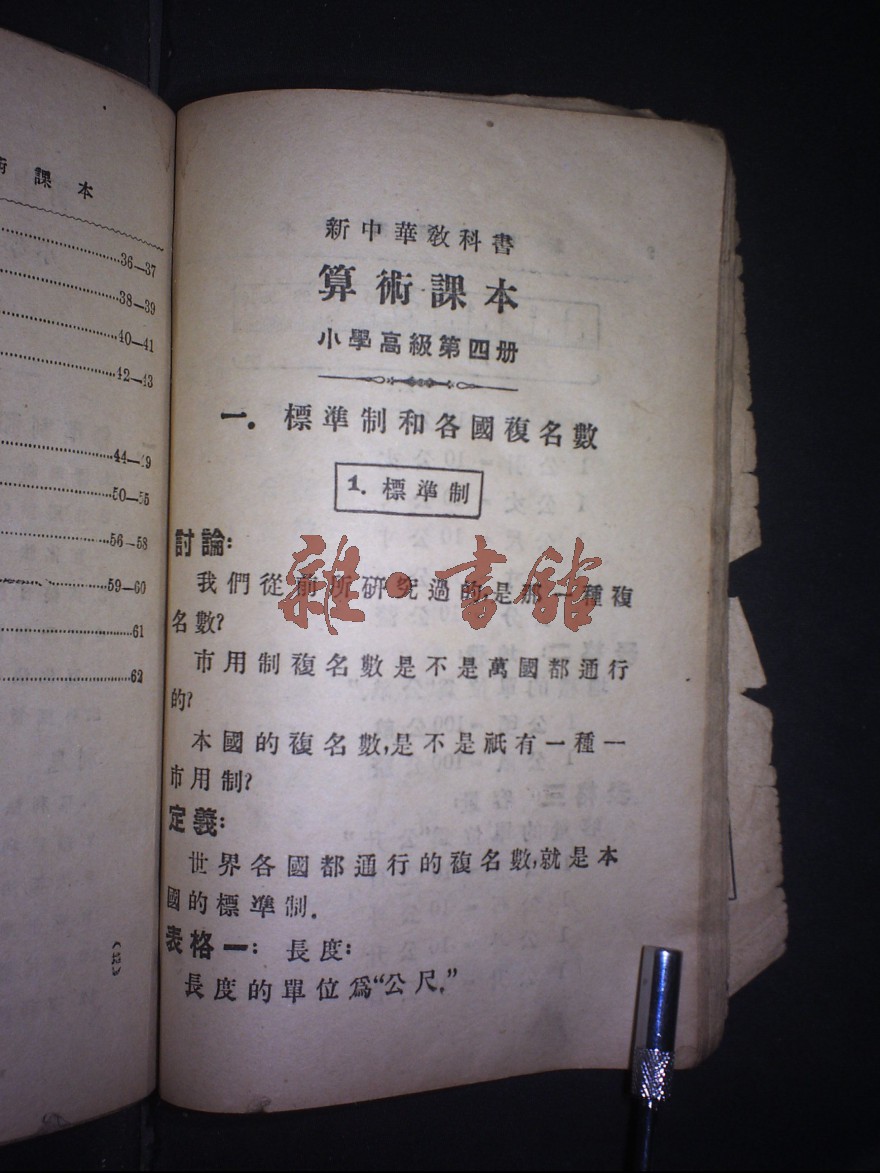 術 課 本
36—37
38—39
40—41
42—43
44—49
50—55
56—58
59—60
61
62
新中華教科書
算術課本
小學高級第四册
一. 標準制和各國複名數
1. 標準制
討論:
我們從前所研究過的,是那一種複
名數?
市用制複名數是不是萬國都通行
的?
本國的複名數,是不是祇有一種一
市用制?
定義:
世界各國都通行的複名數,就是本
國的標準制.
表格一: 長度:
長度的單位爲“公尺.”
雜·書館